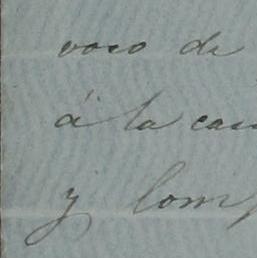 vaso de
á la cas
y Com